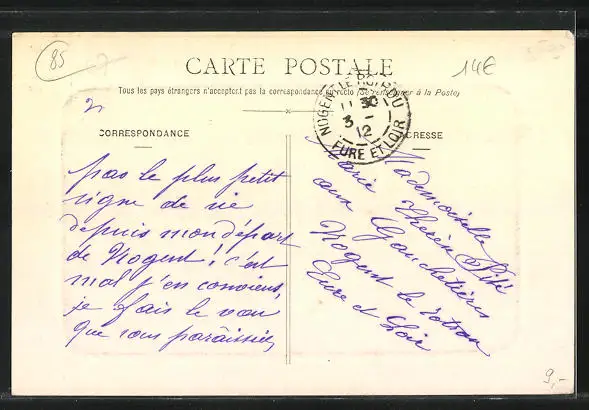 85
14€
CARTE POSTALE
Tous les pays étrangers n'acceptent pas la correspondance au recto (se renseigner à la Poste)
NOGENT LE ROTROU
3 -
12
EURE ET LOIR
CORRESPONDANCE
pas le plus petit
signe de vie
depuis mon départ
de Nogent! c'est
mal j'en conviens,
je fais le vœu
que vous paraissiez
ADRESSE
Mademoiselle
Marie
aux Gauchetières
Nogent le Rotrou
Eure et Loir
9,-